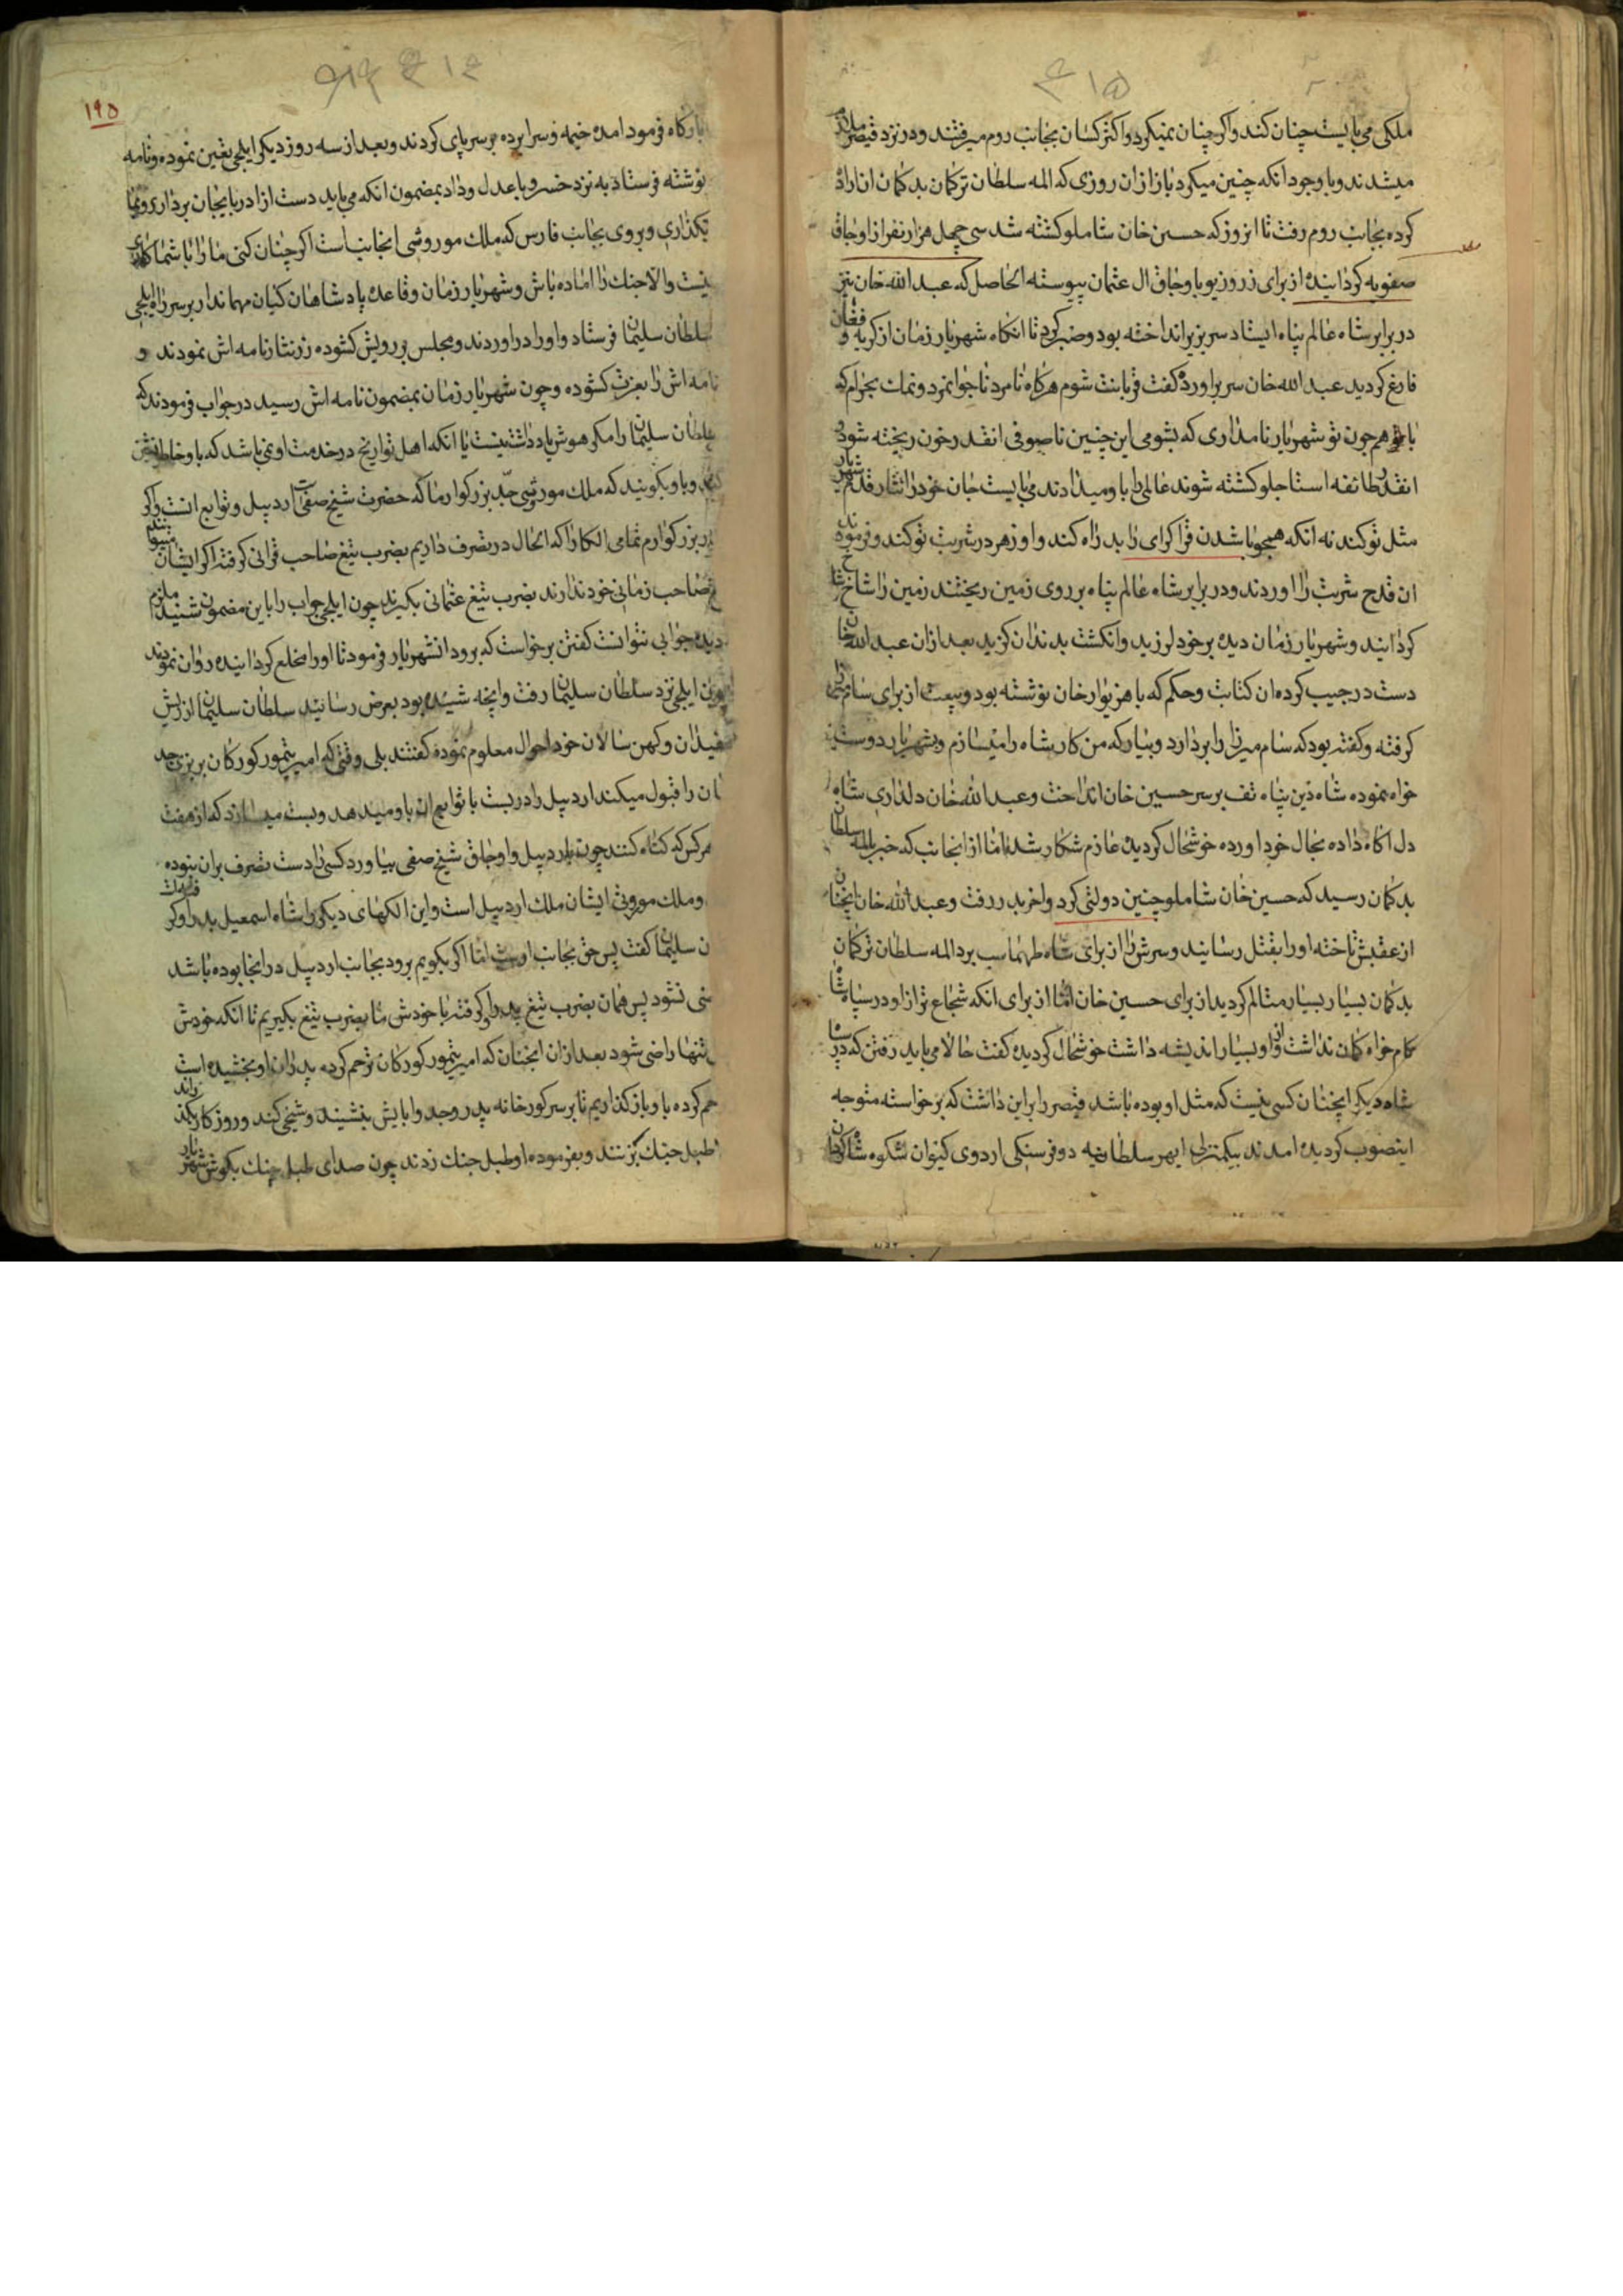 ۴۱۵
ملکی می بایست چنان کند و اکر چنان نمیکرد و اکثر کسان بجانب روم میرفتند و در نزد قیصر ملازم
میشدند و با وجود انکه چنین میکرد باز از ان روزی که المه سلطان ترکمان بد کمان اناراد
کرده بجانب روم رفت تا انروز که حسین خان شاملو کشته شد سی چهل هزار نفر از اوجاق
صفویه کردانیده از برای زر و زیور با وجاق ال عثمان پیوسته الحاصل که عبد الله خان نیز
در برابر شاه عالم پناه ایستاد سر بزیر انداخته بود و صبر کرد تا انکاه شهریار زمان از کریه و فغان
فارغ کردید عبد الله خان سر براورد کفت قربانت شوم هرکاه نامرد ناجوانمرد و نمک بحرام که
با همچون تو شهریار نامداری که بشومی این چنین ناصوفی انقدر خون ریخته شود و
انقدر طائفه استاجلو کشته شوند عالمی را باو میدادند می بایست جان خود را نثار قدم شهریار
مثل تو کند نه انکه همچو باشدن قراکرای را بد راه کند و او زهر در شربت تو کند و فرمودند
ان قدح شربت را اوردند و در برابر شاه عالم پناه بر روی زمین ریختند زمین را شاخ شاخ
کردانید و شهریار زمان دیده بر خود لرزید و انکشت بدندان کزید بعد از ان عبد الله خان
دست در جیب کرده ان کتابت و حکم که باهزیوار خان نوشته بود و بیعت از برای سام میرزا
کرفته و کفته بود که سام میرزا را بردارد و بیار که من کار شاه را میسازم و شهریار دوست
خواه نموده شاه دین پناه تف بر سر حسین خان انداخت و عبد الله خان دلداری شاه
دل اکاه داده بحال خود اورده خوشحال کردیده عازم شکار شد اما از انجانب که خبر بالمه سلطان
بد کمان رسید که حسین خان شاملو چنین دولتی کرد و اخر بدر رفت و عبد الله خان انچنان
از عقبش تاخته او را بقتل رسانید و سرش را از برای شاه طهماسب برد المه سلطان ترکمان
بد کمان بسیار بسیار متالم کردید از برای حسین خان اما از برای انکه شجاع تر از او در سپاه شاه
کام خواه کمان نداشت و از او بسیار اندیشه داشت خوشحال کردیده کفت حالا می باید رفتن که در سپاه
شاه دیکر انچنان کسی نیست که مثل او بوده باشد قیصر را براین داشت که برخواسته متوجه
اینصوب کردیده امدند بیکمنزلی ابهر سلطانیه دو فرسنکی اردوی کیوان شکوه شاه
۴۱۴
۱۹۵
بارکاه فرمود امده خیمه و سراپرده بر سر پای کردند و بعد از سه روز دیکر ایلچی تعین نموده و نامه
نوشته فرستاد به نزد خسرو با عدل و داد بمضمون انکه می باید دست از اذربایجان برداری و بما
بکذاری و بروی بجانب فارس که ملک موروثی انجانب است اکر چنان کنی ما را با شما کاری
نیست والا جنک را اماده باش و شهریار زمان و قاعده پادشاهان کیان مهماندار بر سر راه ایلچی
سلطان سلیمان فرستاد و او را دراوردند و مجلس بر رویش کشوده زر نثار نامه اش نمودند و
نامه اش را بعزت کشوده و چون شهریار زمان بمضمون نامه اش رسید در جواب فرمودند که
سلطان سلیمان را مکر هوش یاد داشت نیست یا انکه اهل تواریخ در خدمت او نمی باشد که باو خاطر نشین
کنند و باو بکویند که ملک موروثی جد بزرکوار ما که حضرت شیخ صفی است اردبیل و توابع انست و اکر
پدر بزرکوارم تمامی الکا را که الحال در تصرف داریم بضرب تیغ صاحب قرانی کرفته اکر ایشان میتوانند
تیغ صاحب زمانی خود ندارند بضرب تیغ عثمانی بکیرند چون ایلچی جواب را باین مضمون شنید
دیده جوابی نتوانست کفتن برخواست که برود انشهریار فرمود تا او را مخلع کردانیده روان نمودند
چون ایلچی نزد سلطان سلیمان رفت وانچه شنیده بود بعرض رسانید سلطان سلیمان از ریش
سفیدان و کهن سالان خود احوال معلوم نموده کفتند بلی وقتی که امیر تیمور کورکان بر بزرکی جد
ایشان را قبول میکند اردبیل را دربست با توابع ان باو میدهد و بست میسازد که از هفت
هر کس که کناه کند چون باردبیل و اوجاق شیخ صفی بیاورد کسی را دست تصرف بران نبوده
و ملک موروثی ایشان ملک اردبیل است و این الکهای دیکر را شاه اسمعیل بدر اورد
سلطان سلیمان کفت پس حق بجانب اوست اما اکر بکویم برود بجانب اردبیل در انجا بوده باشد
راضی نشود پس همان بضرب تیغ پدر او کرفته با خودش ما بضرب تیغ بکیریم تا انکه خودش
تنها راضی شود بعد از ان انچنان که امیر تیمور کورکان ترحم کرده پدران او بخشیده است
رحم کرده باو باز کذاریم تا بر سر کورخانه پدر و جد و ابایش بنشیند و شیخی کند و روزکار بکذراند
طبل جنک بزنند و بفرموده او طبل جنک زدند چون صدای طبل جنک بکوش شهریار